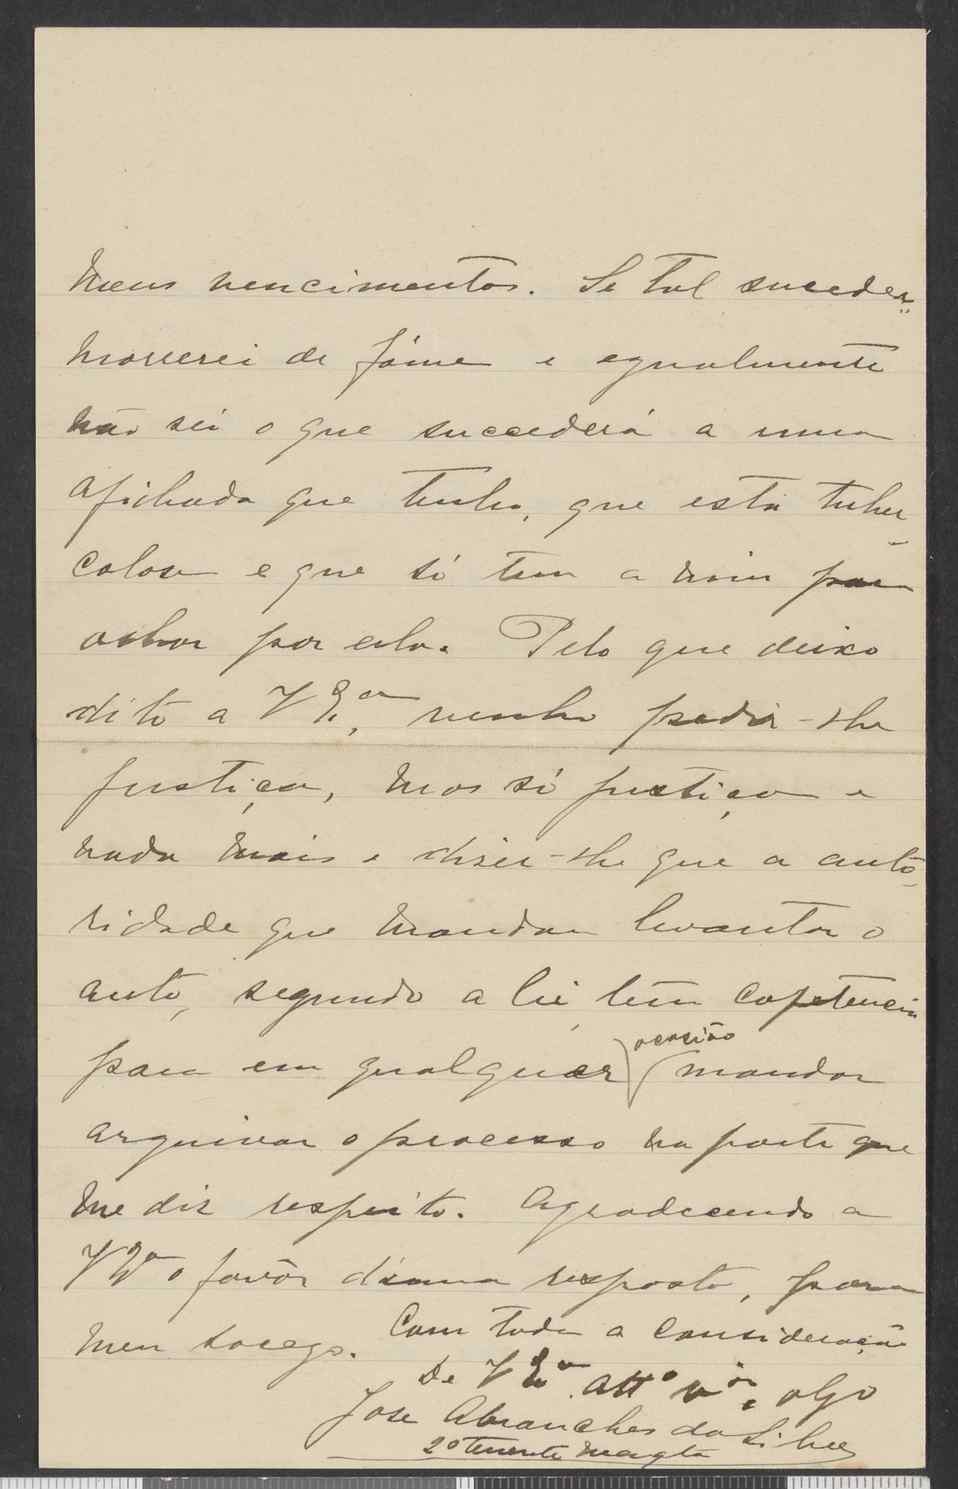 meus vencimentos. Se tal succeder,
morrerei de fóme e egualmente
não sei o que succederá a uma
afilhada que tenho, que está tuber-
colosa e que só tem a mim para
olhar por ela. Pelo que deixo
dito a V Exª, venho pedir-lhe
justiça, mas só justiça e
nada mais e dizer-lhe que a auto-
ridade que mandou levantar o
auto, segundo a lei, tem copetencia
para em qualquer ocasião mandar
arquivar o processo na parte que
me diz respeito. Agradecendo a
V Exª o favôr d'uma resposta, para
meu socego. Com toda a consideração
De V Exª. Attº vºr e obgº
Jose Abranches da Silva
2º tenente